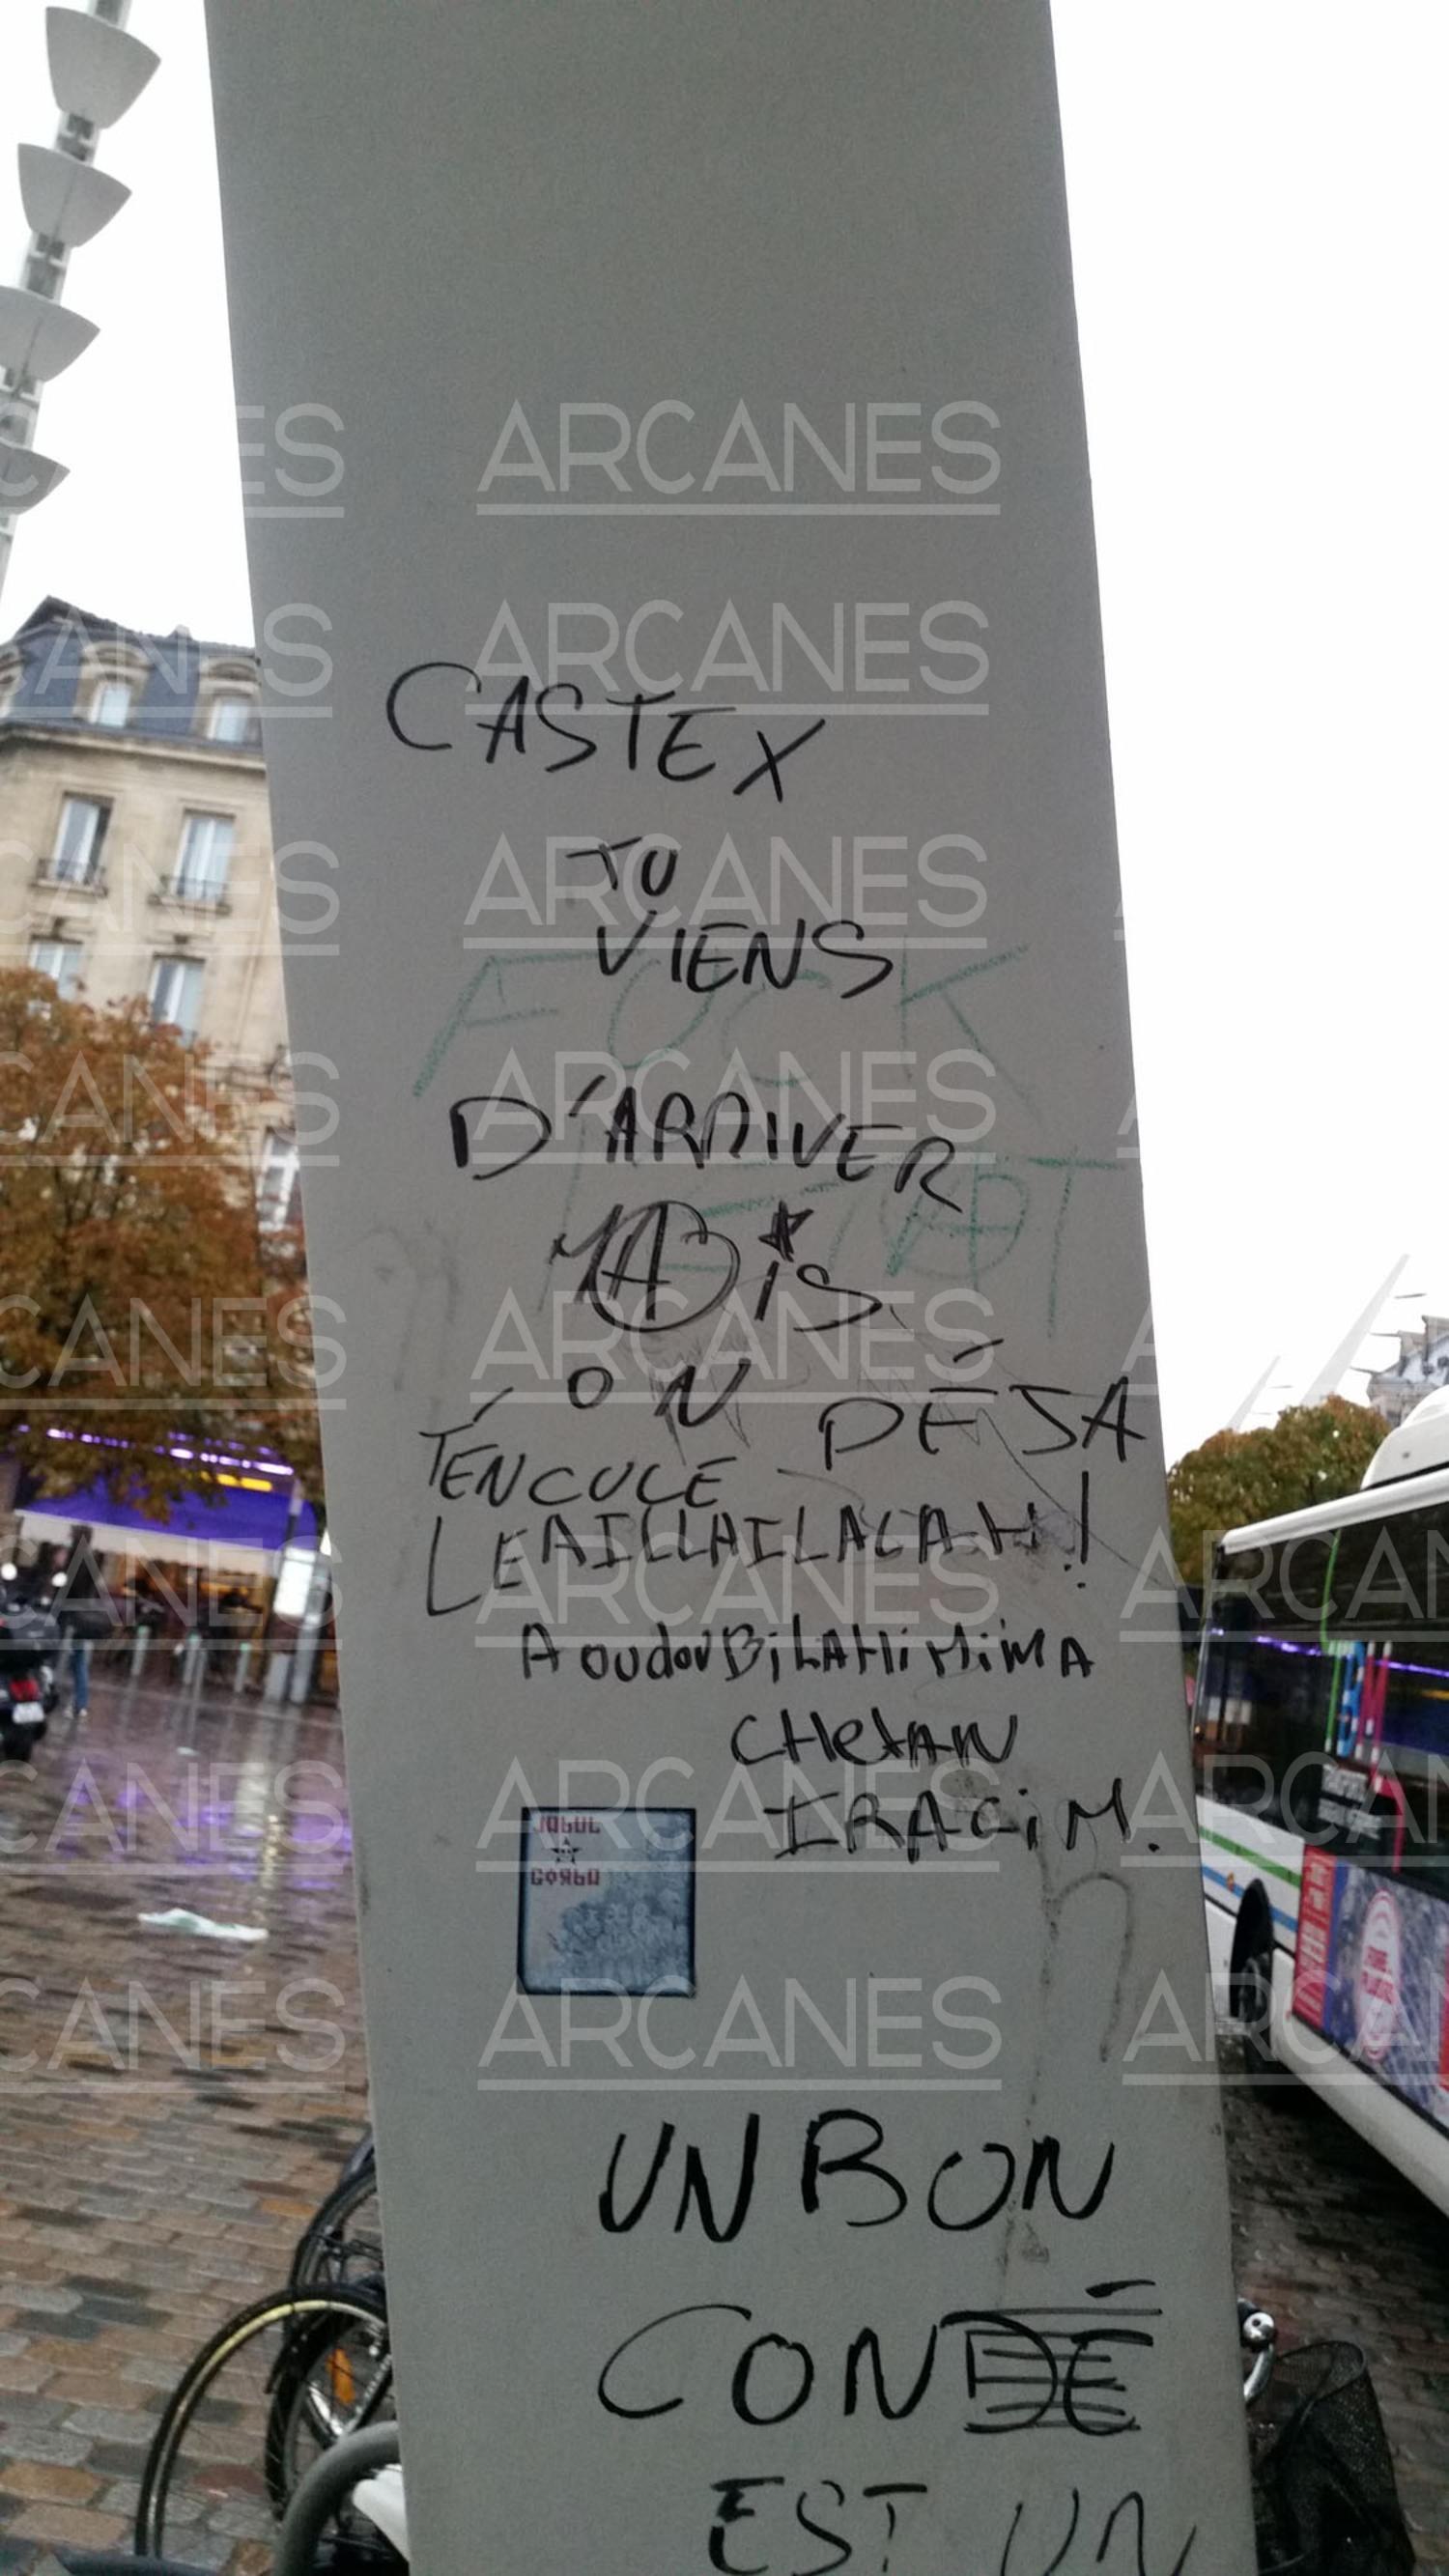 ARCANES
CASTEX
TU
VIENS
FUCK
D'ARRIVER
MAIS
ON DÉJÀ
T'ENCULE
LEAILLAILALAH!
AOUdouBiLAHiMiMA
CHetAN
IRAGiM.
UN BON
CONDÉ
EST UN